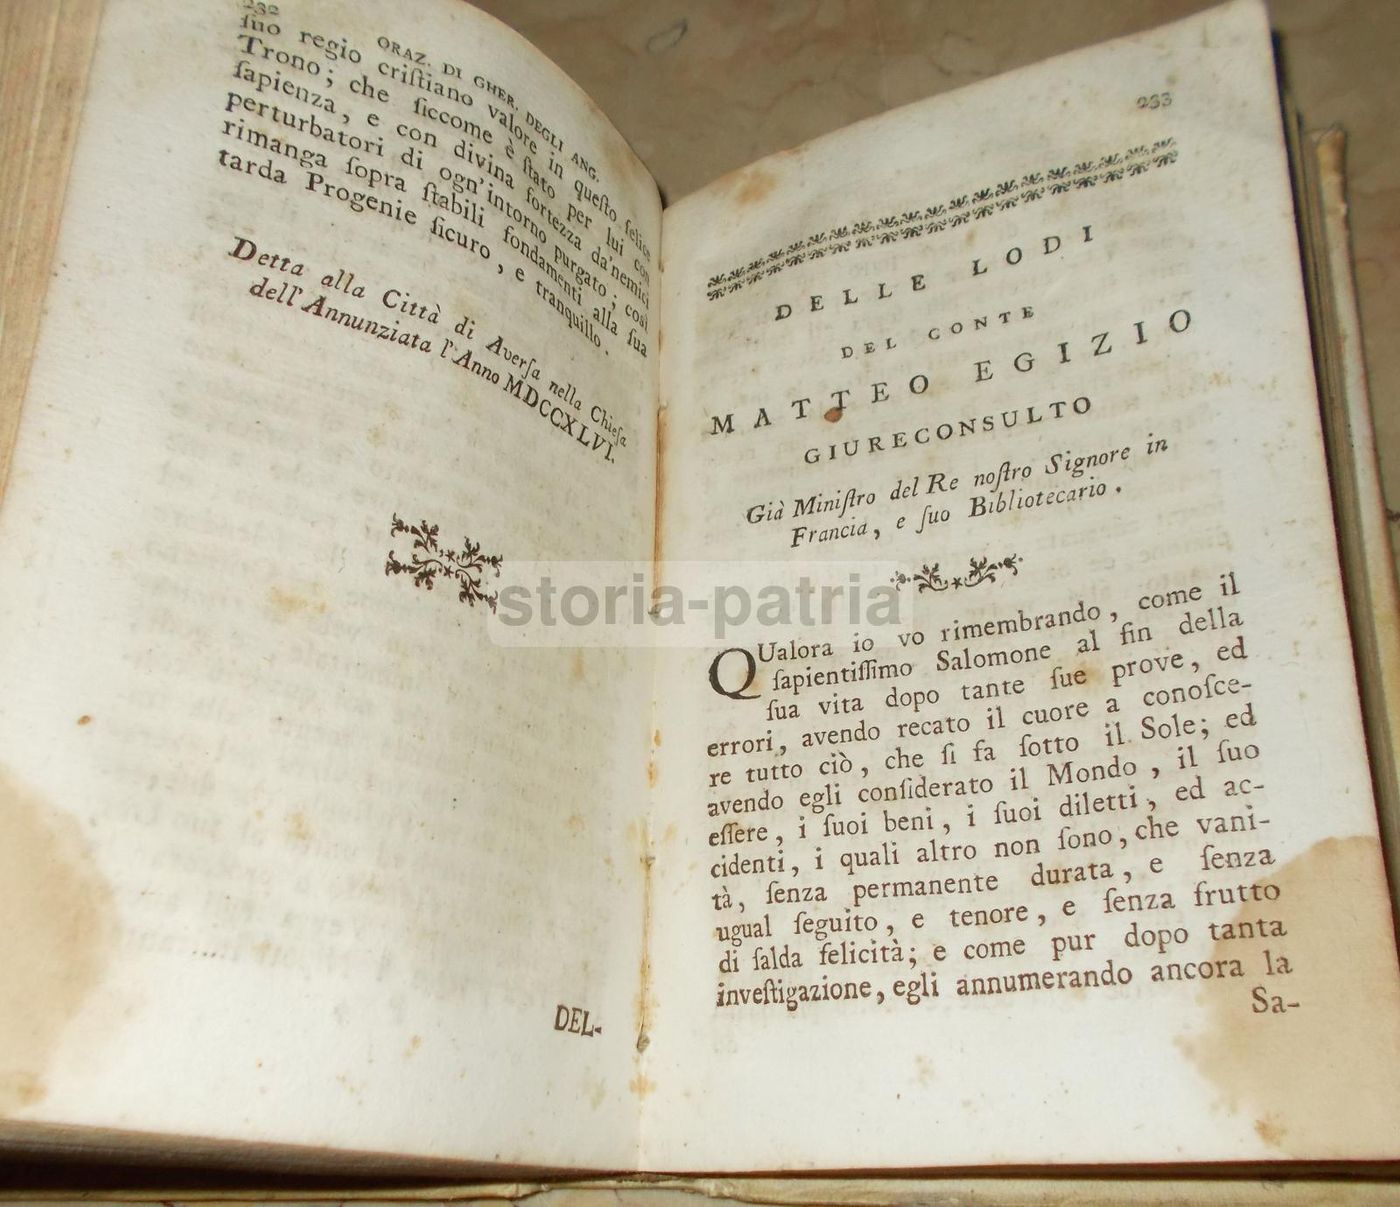 232 ORAZ. DI GHER. DEGLI ANG.
ſuo regio criſtiano valore in queſto felice
Trono; che ſiccome è ſtato per lui con
ſapienza, e con divina fortezza da'nemici
perturbatori di ogn'intorno purgato; così
rimanga ſopra ſtabili fondamenti alla ſua
tarda Progenie ſicuro, e tranquillo.
Detta alla Città di Averſa nella Chieſa
dell'Annunziata l'Anno MDCCXLVI.
DEL-
233
DELLE LODI
DEL CONTE
MATTEO EGIZIO
GIURECONSULTO
Già Miniſtro del Re noſtro Signore in
Francia, e ſuo Bibliotecario.
storia-patria
QUalora io vo rimembrando, come il
ſapientiſſimo Salomone al fin della
ſua vita dopo tante ſue prove, ed
errori, avendo recato il cuore a conoſce-
re tutto ciò, che ſi fa ſotto il Sole; ed
avendo egli conſiderato il Mondo, il ſuo
eſſere, i ſuoi beni, i ſuoi diletti, ed ac-
cidenti, i quali altro non ſono, che vani-
tà, ſenza permanente durata, e ſenza
ugual ſeguito, e tenore, e ſenza frutto
di ſalda felicità; e come pur dopo tanta
inveſtigazione, egli annumerando ancora la
Sa-